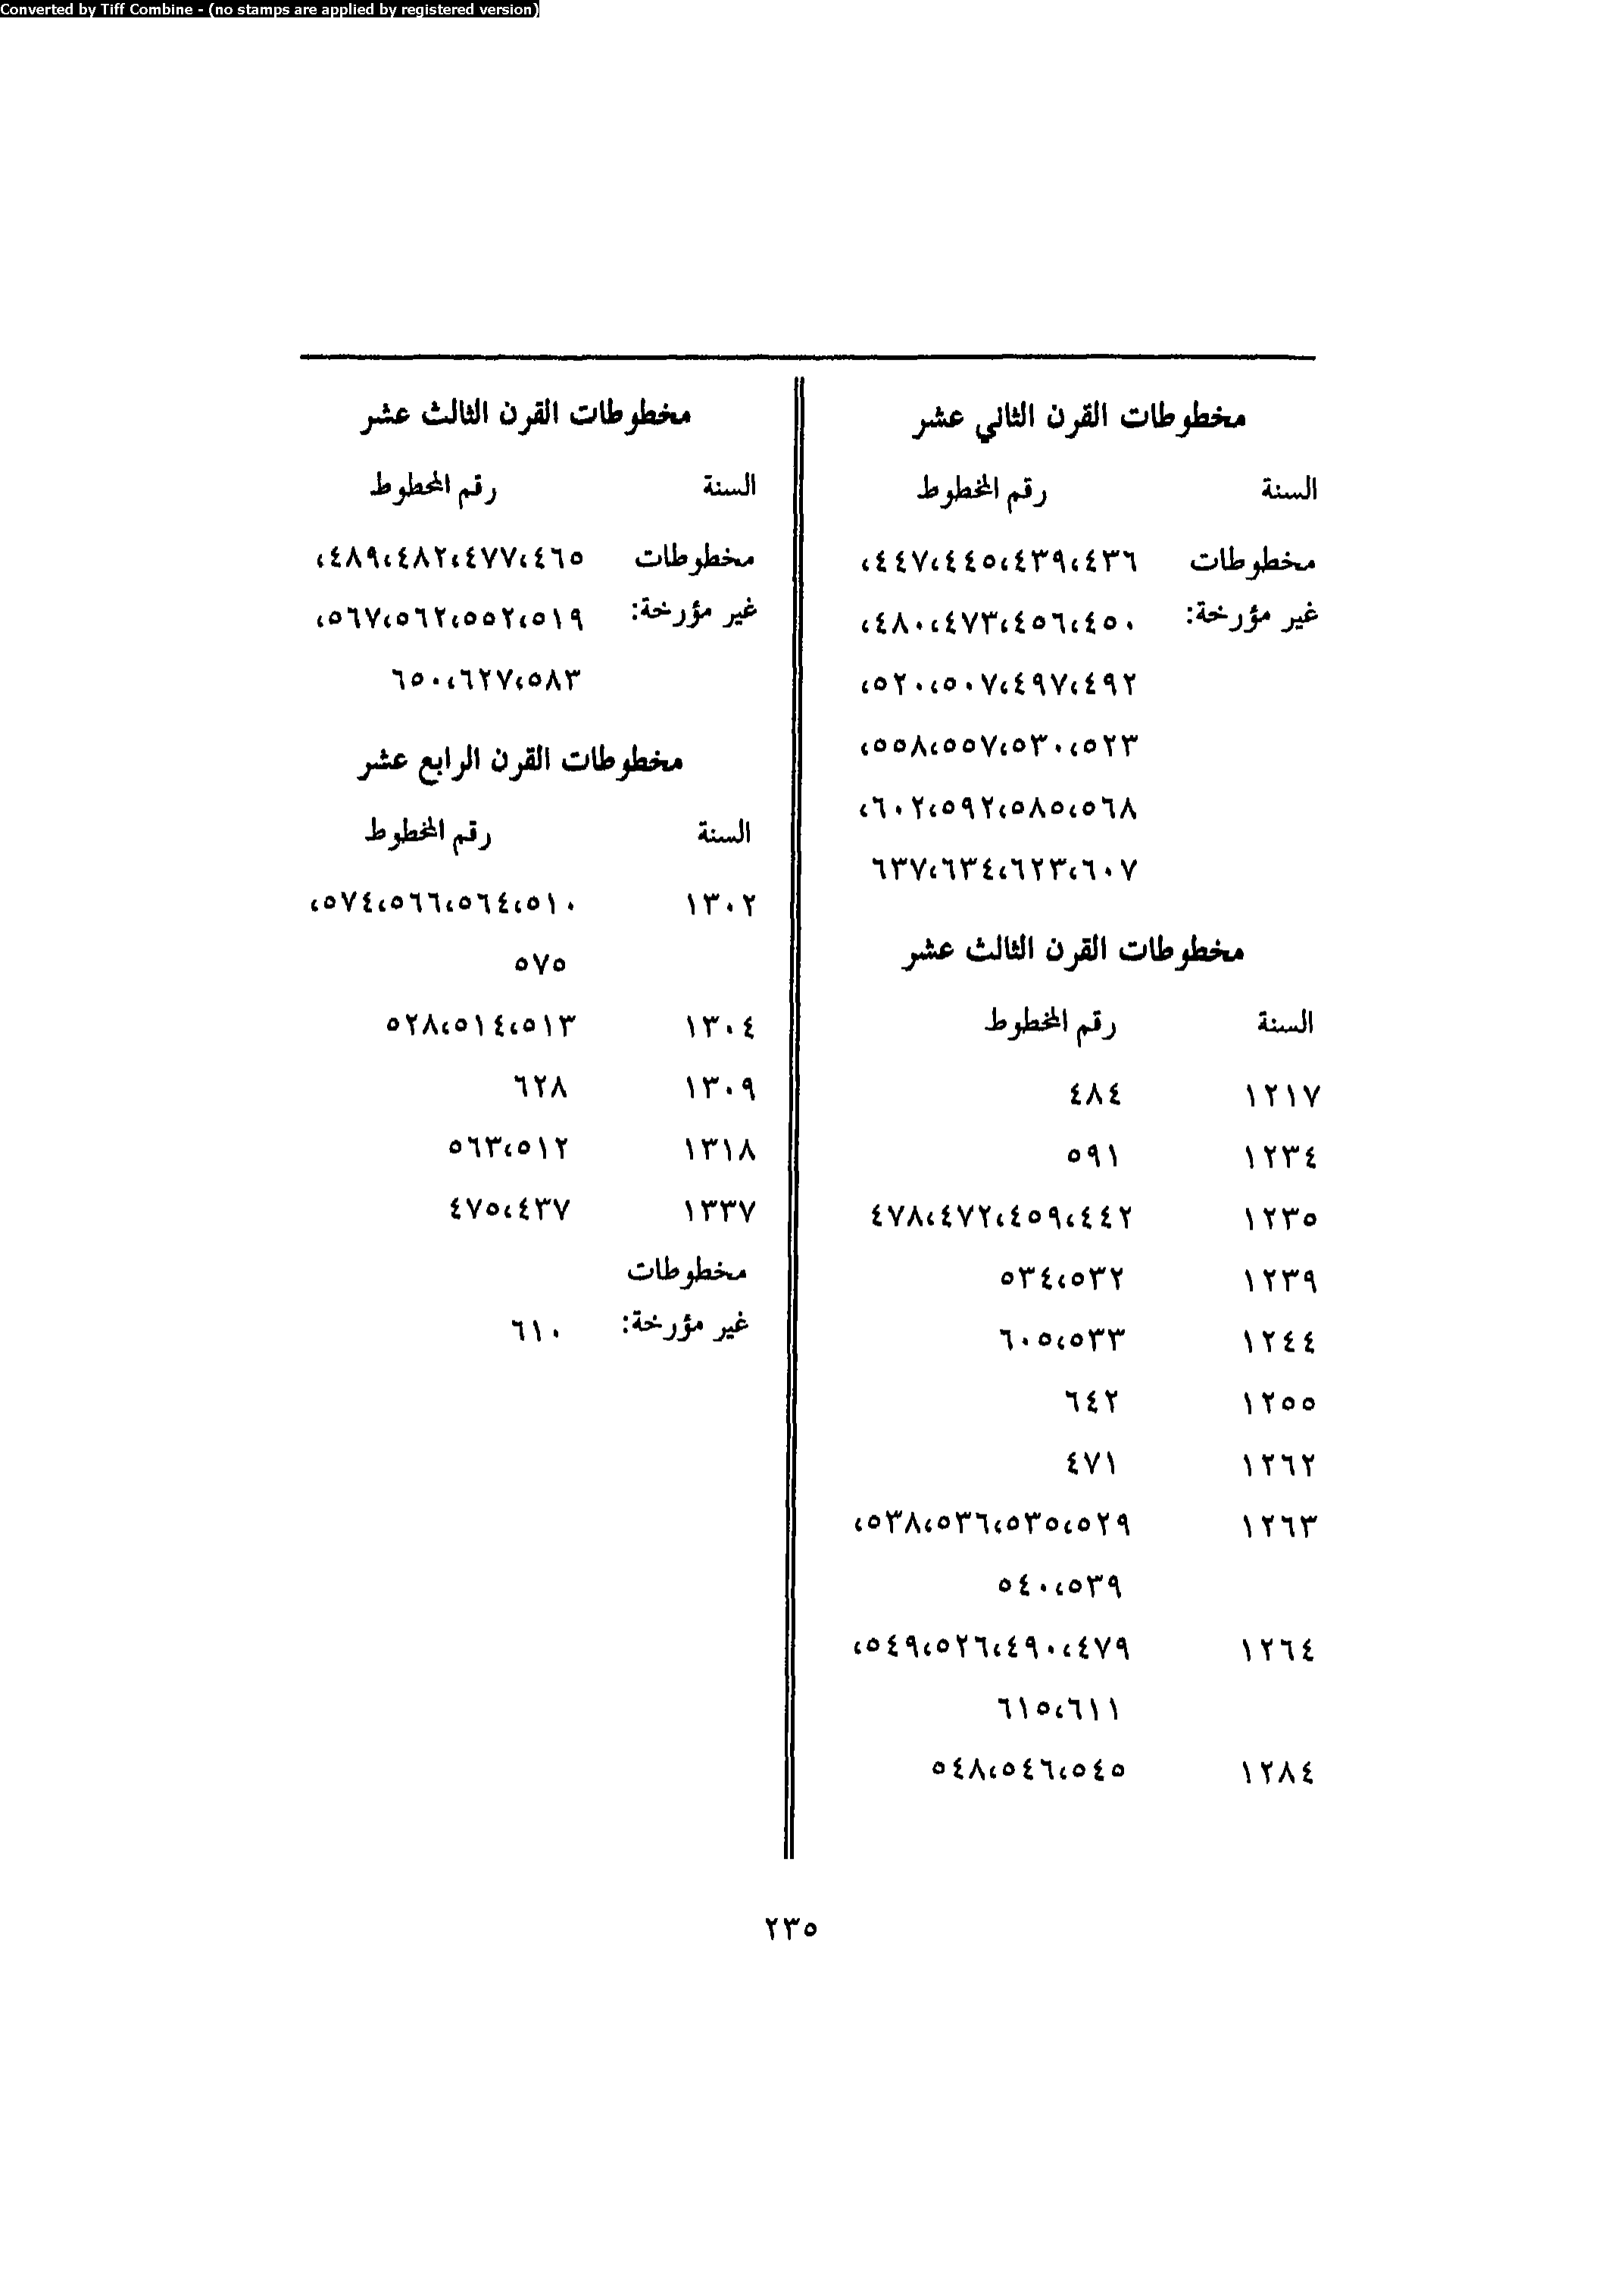 Converted by Tiff Combine - (no stamps are applied by registered version)
مخطوطات القرن الثاني عشر
السنة رقم المخطوط
مخطوطات ٤٣٦،٤٣٩،٤٤٥،٤٤٧،
غير مؤرخة: ٤٥٠،٤٥٦،٤٧٣،٤٨٠،
٤٩٢،٤٩٧،٥٠٧،٥٢٠،
٥٢٣،٥٣٠،٥٥٧،٥٥٨،
٥٦٨،٥٨٥،٥٩٢،٦٠٢،
٦٠٧،٦٢٣،٦٣٤،٦٣٧
مخطوطات القرن الثالث عشر
السنة رقم المخطوط
١٢١٧ ٤٨٤
١٢٣٤ ٥٩١
١٢٣٥ ٤٤٢،٤٥٩،٤٧٢،٤٧٨
١٢٣٩ ٥٣٢،٥٣٤
١٢٤٤ ٥٣٣،٦٠٥
١٢٥٥ ٦٤٢
١٢٦٢ ٤٧١
١٢٦٣ ٥٢٩،٥٣٥،٥٣٦،٥٣٨،
٥٣٩،٥٤٠
١٢٦٤ ٤٧٩،٤٩٠،٥٢٦،٥٤٩،
٦١١،٦١٥
١٢٨٤ ٥٤٥،٥٤٦،٥٤٨
مخطوطات القرن الثالث عشر
السنة رقم المخطوط
مخطوطات ٤٦٥،٤٧٧،٤٨٢،٤٨٩،
غير مؤرخة: ٥١٩،٥٥٢،٥٦٢،٥٦٧،
٥٨٣،٦٢٧،٦٥٠
مخطوطات القرن الرابع عشر
السنة رقم المخطوط
١٣٠٢ ٥١٠،٥٦٤،٥٦٦،٥٧٤،
٥٧٥
١٣٠٤ ٥١٣،٥١٤،٥٢٨
١٣٠٩ ٦٢٨
١٣١٨ ٥١٢،٥٦٣
١٣٣٧ ٤٣٧،٤٧٥
مخطوطات
غير مؤرخة: ٦١٠
٢٣٥